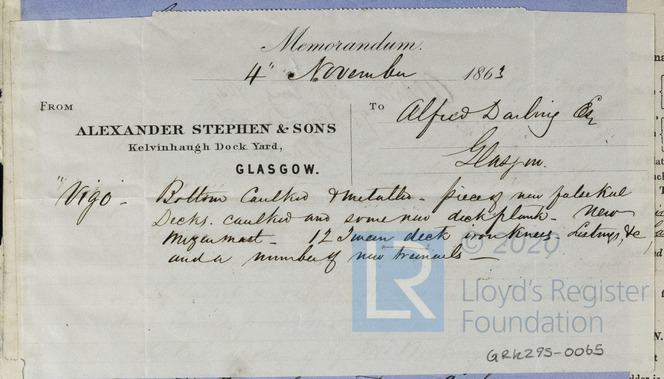 Memorandum.
4" November 1863
FROM
ALEXANDER STEPHEN & SONS
Kelvinhaugh Dock Yard,
GLASGOW.
To
Alfred Darling Esq
Glasgow.
"Vigo" - Bottom Caulked & metalled - piece of new false keel
Decks caulked and some new deck plank - New
Mizenmast - 12 Tween deck iron knees - &c
and a number of new treenails -
© 2020
LR
Lloyd's Register
Foundation
GRK295-0065